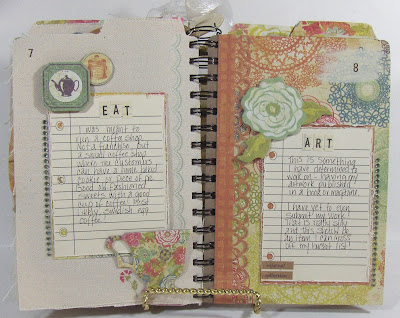 7
EAT
I was meant to
run a coffee shop.
Not a franchise, but
a small coffee shop
where the customers
can have a home baked
cookie, or piece of pie.
Good old-fashioned
sweets with a good
cup of coffee! Most
likely, Swedish egg
coffee!
8
ART
This is something
I have determined to
work on - having my
artwork published
in a book or magazine
I have yet to even
submit my work!
that is really silly
and this should be
an item I can cross
off my bucket list!